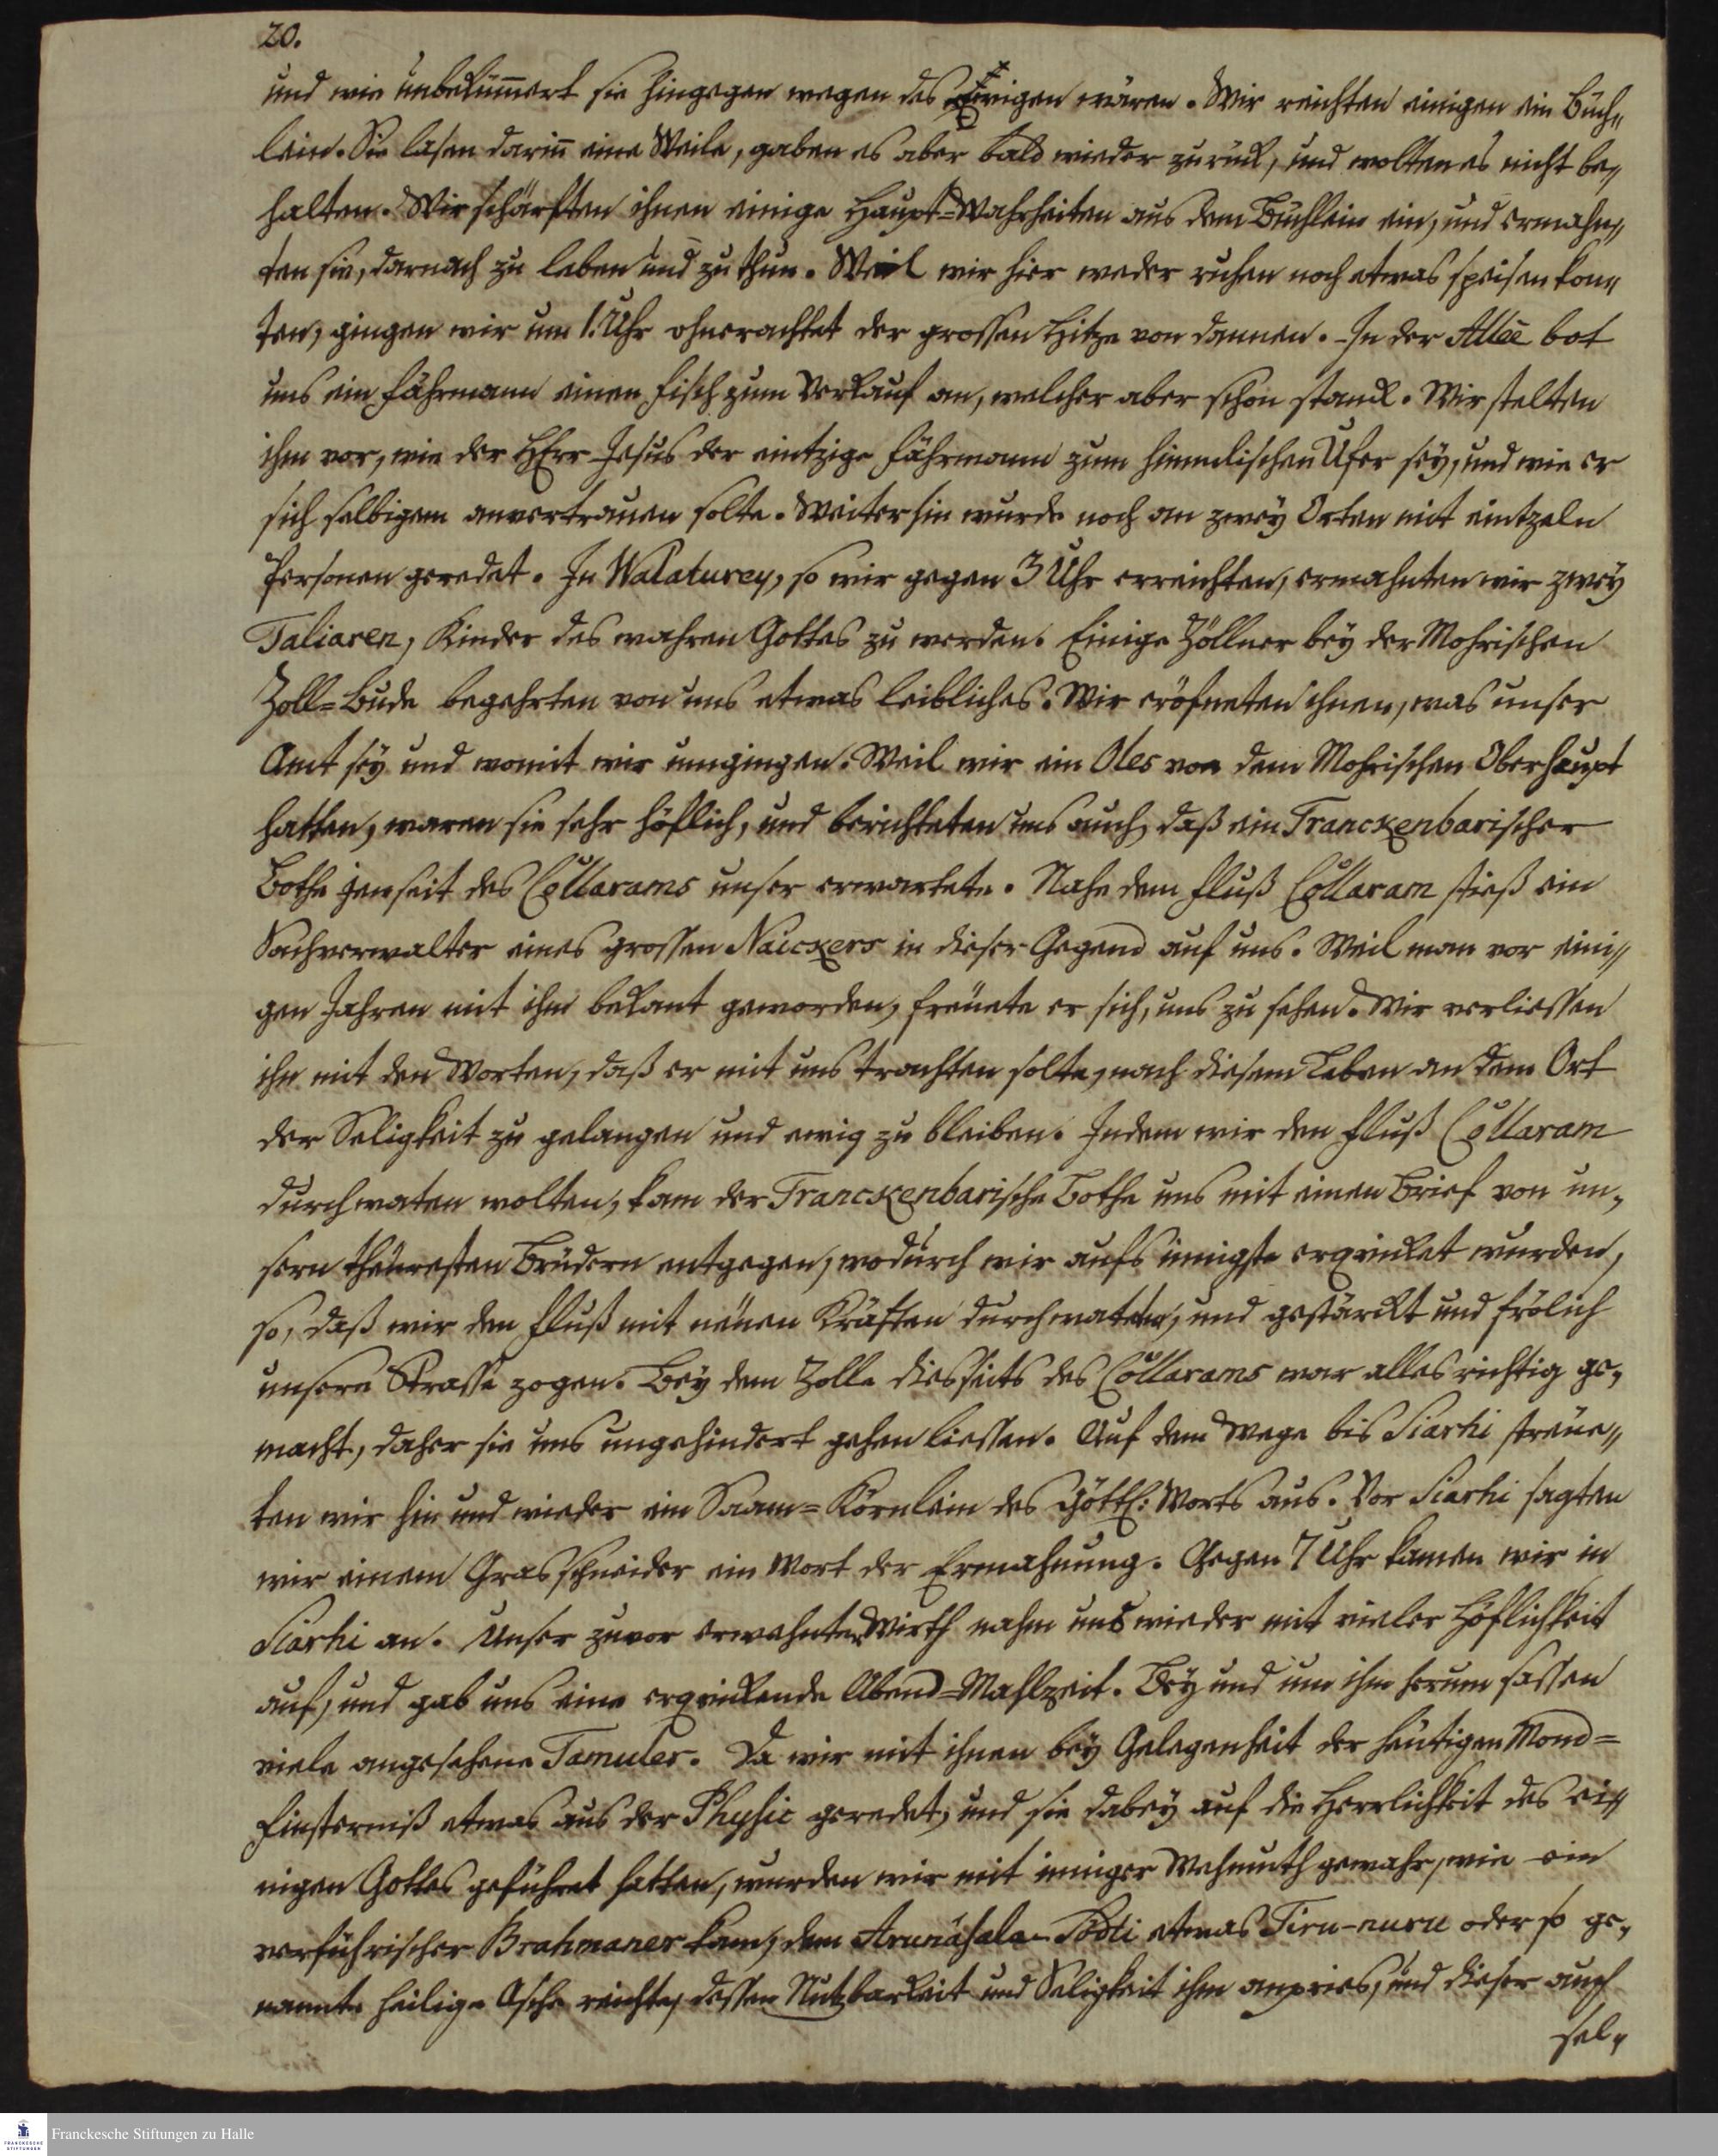 20.
und wie unbekümmert sie hingegen wegen des Ewigen wären. Wir reichten einigen ein Büch„
lein. Sie lasen darin̄ eine Weile, gaben es aber bald wieder zurück, und wolten es nicht be„
halten. Wir schärften ihnen einige Haupt=Wahrheiten aus dem Büchlein ein, und ermahn„
ten sie, darnach zu leben und zu thun. Weil wir hier weder ruhen noch etwas speisen kon„
ten, gingen wir um 1. Uhr ohnerachtet der grossen Hitze von dannen. In der Allee bot
uns ein Fährmann einen Fisch zum Verkauf an, welcher aber schon stanck. Wir stelten
ihm vor, wie der HErr Jesus der eintzige Fährmann zum himmlischen Ufer sey, und wie er
sich selbigem anvertrauen solte. Weiterhin wurde noch an zwey Orten mit eintzeln
Personen geredet. In Walaturey, so wir gegen 3 Uhr erreichten, ermahnten wir zwey
Taliaren, Kinder des wahren Gottes zu werden. Einige Zöllner bey der Mohrischen
Zoll=Bude begehrten von uns etwas leibliches. Wir eröfneten ihnen, was unser
Amt sey und womit wir umgingen. Weil wir ein Oles von dem Mohrischen Oberhaupt
hatten, waren sie sehr höflich, und berichteten uns auch, daß ein Franckenbarischer
Bothe jenseit des Collarams unser erwartete. Nahe dem Fluß Collaram stieß ein
Sachverwalter eines grossen Naickers in dieser Gegend auf uns. Weil man vor eini„
gen Jahren mit ihm bekant geworden, freuete er sich, uns zu sehen. Wir verliessen
ihn mit den Worten, daß er mit uns trachten solte, nach diesem Leben an dem Ort
der Seligkeit zu gelangen und ewig zu bleiben. Indem wir den Fluß Collaram
durchwaten wolten, kam der Franckenbarische Bothe uns mit einen Brief von un„
sern theuresten Brüdern entgegen, wodurch wir aufs innigste erqvicket wurden,
so, daß wir den Fluß mit neuen Kräften durchwateten, und gestärckt und frölich
unsere Strasse zogen. Bey dem Zolle diesseits des Collarams war alles richtig ge„
macht, daher sie uns ungehindert gehen liessen. Auf dem Wege bis Siarhi streue„
ten wir hin und wieder ein Saam=Körnlein des Göttl: Worts aus. Vor Siarhi sagten
wir einem Grasschneider ein Wort der Ermahnung. Gegen 7 Uhr kamen wir in
Siarhi an. Unser zuvor erwehnter Wirth nahm uns wieder mit vieler Höflichkeit
auf, und gab uns eine erqvickende Abend=Mahlzeit. Bey und um ihm herum sassen
viele angesehene Tamuler. Da wir mit ihnen bey Gelegenheit der heutigen Mond=
Finsterniß etwas aus der Physic geredet, und sie dabey auf die Herrlichkeit des ei„
nigen Gottes geführet hatten, wurden wir mit inniger Wehmuth gewahr, wie ein
verführischer Brahmaner kam, dem Arunáhala-Tödti etwas Tiru-nuru oder so ge„
nannte heilige Asche reichte, dessen Nutzbarkeit und Seligkeit ihm anpries, und dieser auch
sel„
Franckesche Stiftungen zu Halle
FRANCKESCHE
STIFTUNGEN